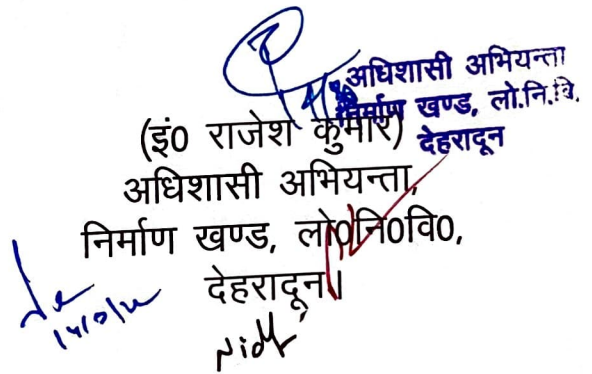 अधिशासी अभियन्ता
निर्माण खण्ड, लो.नि.वि.
देहरादून
(इं0 राजेश कुमार)
अधिशासी अभियन्ता,
निर्माण खण्ड, लो0नि0वि0,
देहरादून।